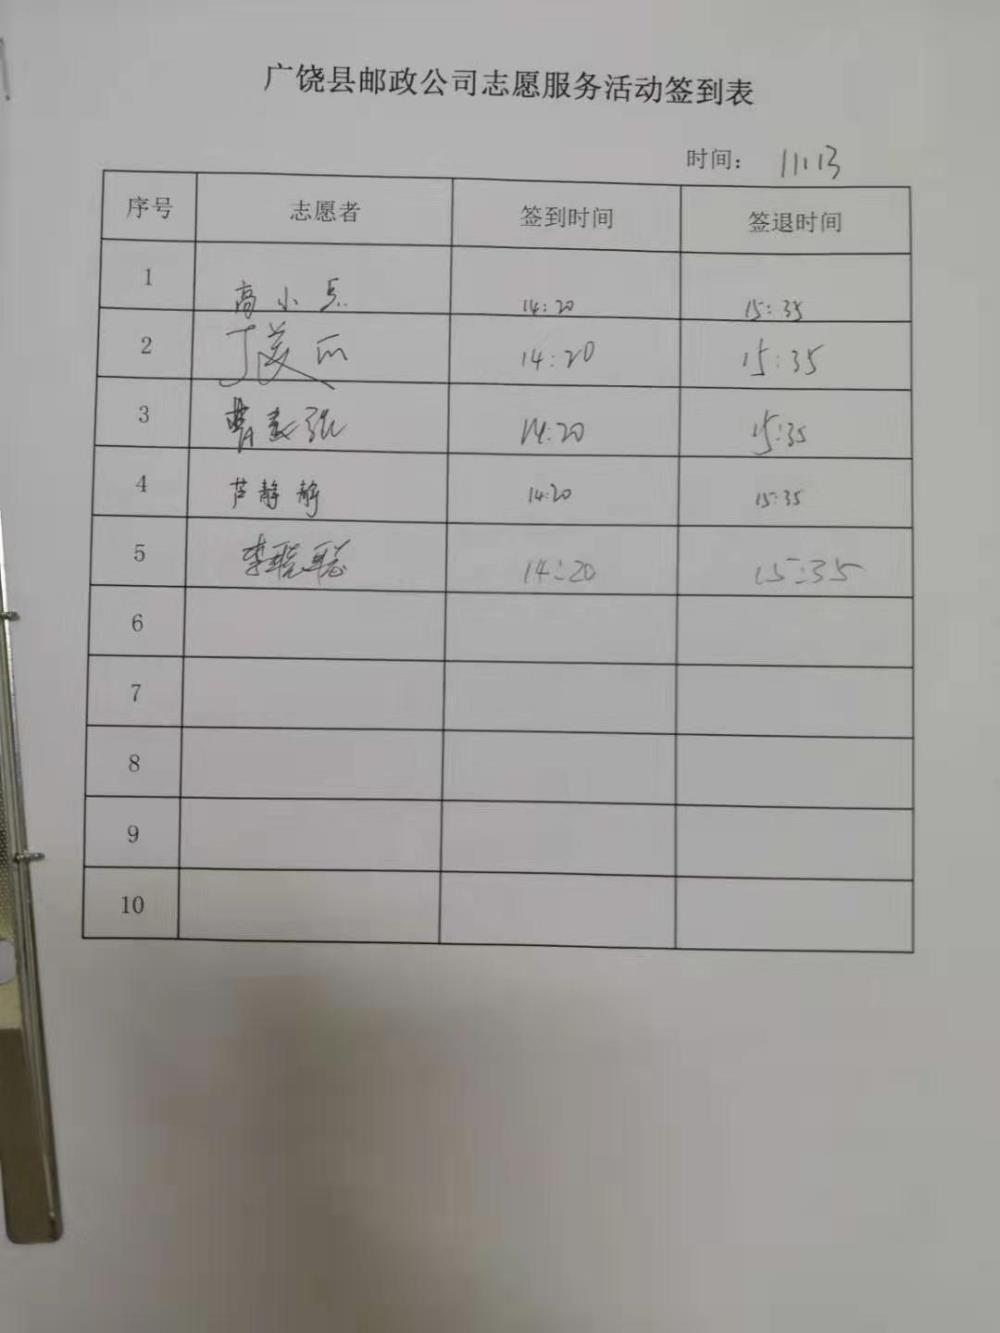 广饶县邮政公司志愿服务活动签到表
时间： 11.13
序号 志愿者 签到时间 签退时间
1 高小兵 14:20 15:35
2 丁美丽 14:20 15:35
3 曹 14:20 15:35
4 芦静静 14:20 15:35
5 李聪聪 14:20 15:35
6
7
8
9
10